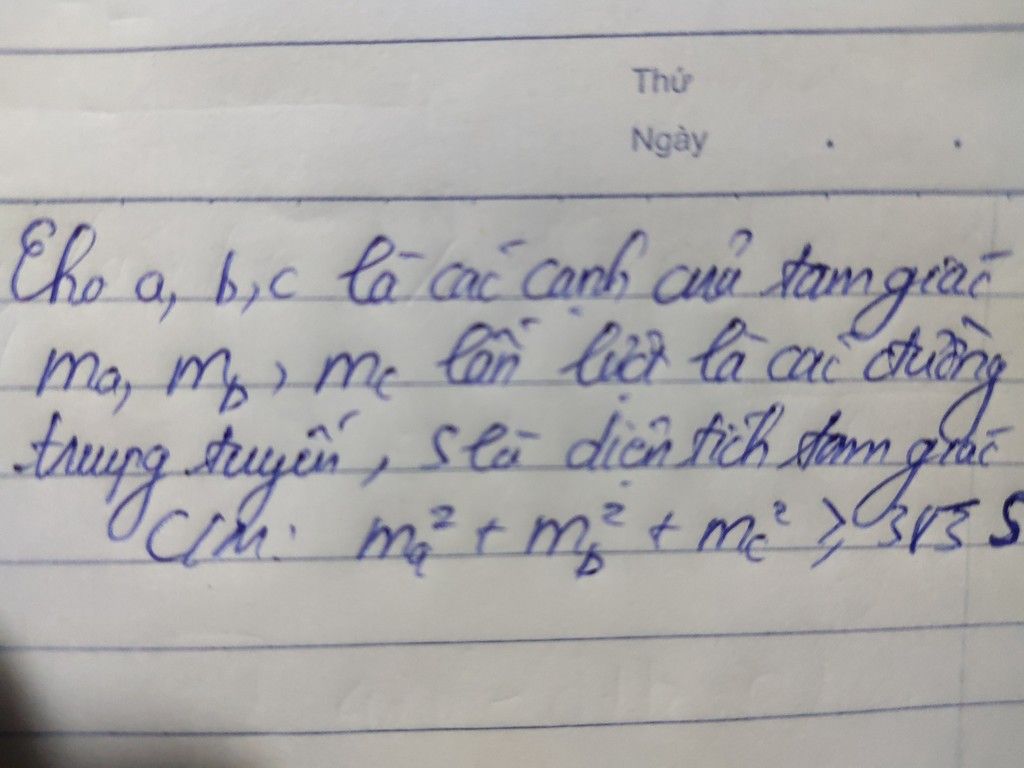 Thứ
Ngày . .
Cho a, b, c là các cạnh của tam giác
ma, mb, mc lần lượt là các đường
trung tuyến, S là diện tích tam giác
C/m: ma² + mb² + mc² ≥ 3√3 S